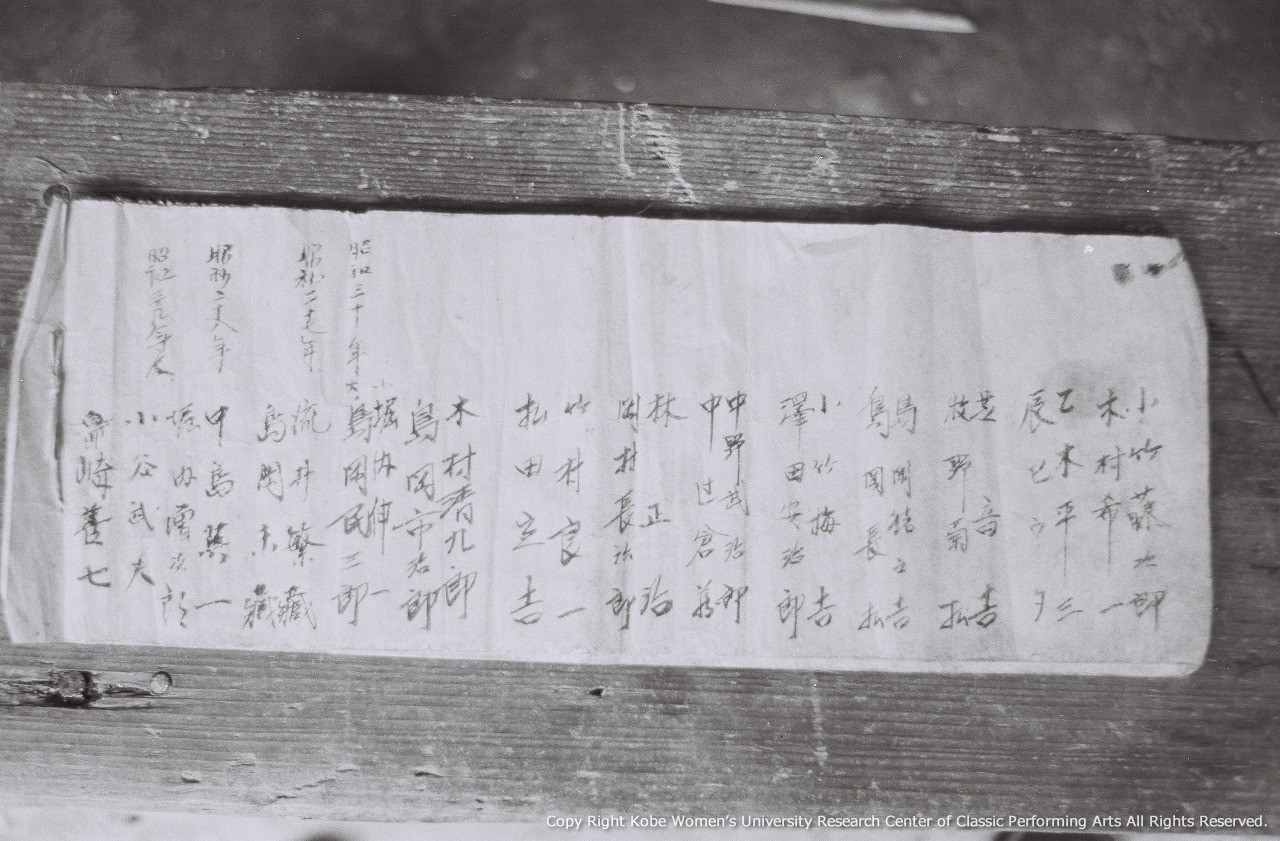 小竹藤太郎
木村希一
乙木平三
辰巳
芝音吉
牧野菊松
島岡 吉
島岡長松
小竹梅吉
澤田安治郎
中野武治郎
中
林正治
岡村長治郎
竹村良一
松田立吉
木村清九郎
島岡市治郎
堀内伸一
昭和三十年
島岡民三郎
流井繁藏
昭和二十七年
島岡 藏
中島 一
昭和二十八年
堀内 次郎
小谷武夫
昭和二九年
島崎善七
Copy Right Kobe Women's University Research Center of Classic Performing Arts All Rights Reserved.